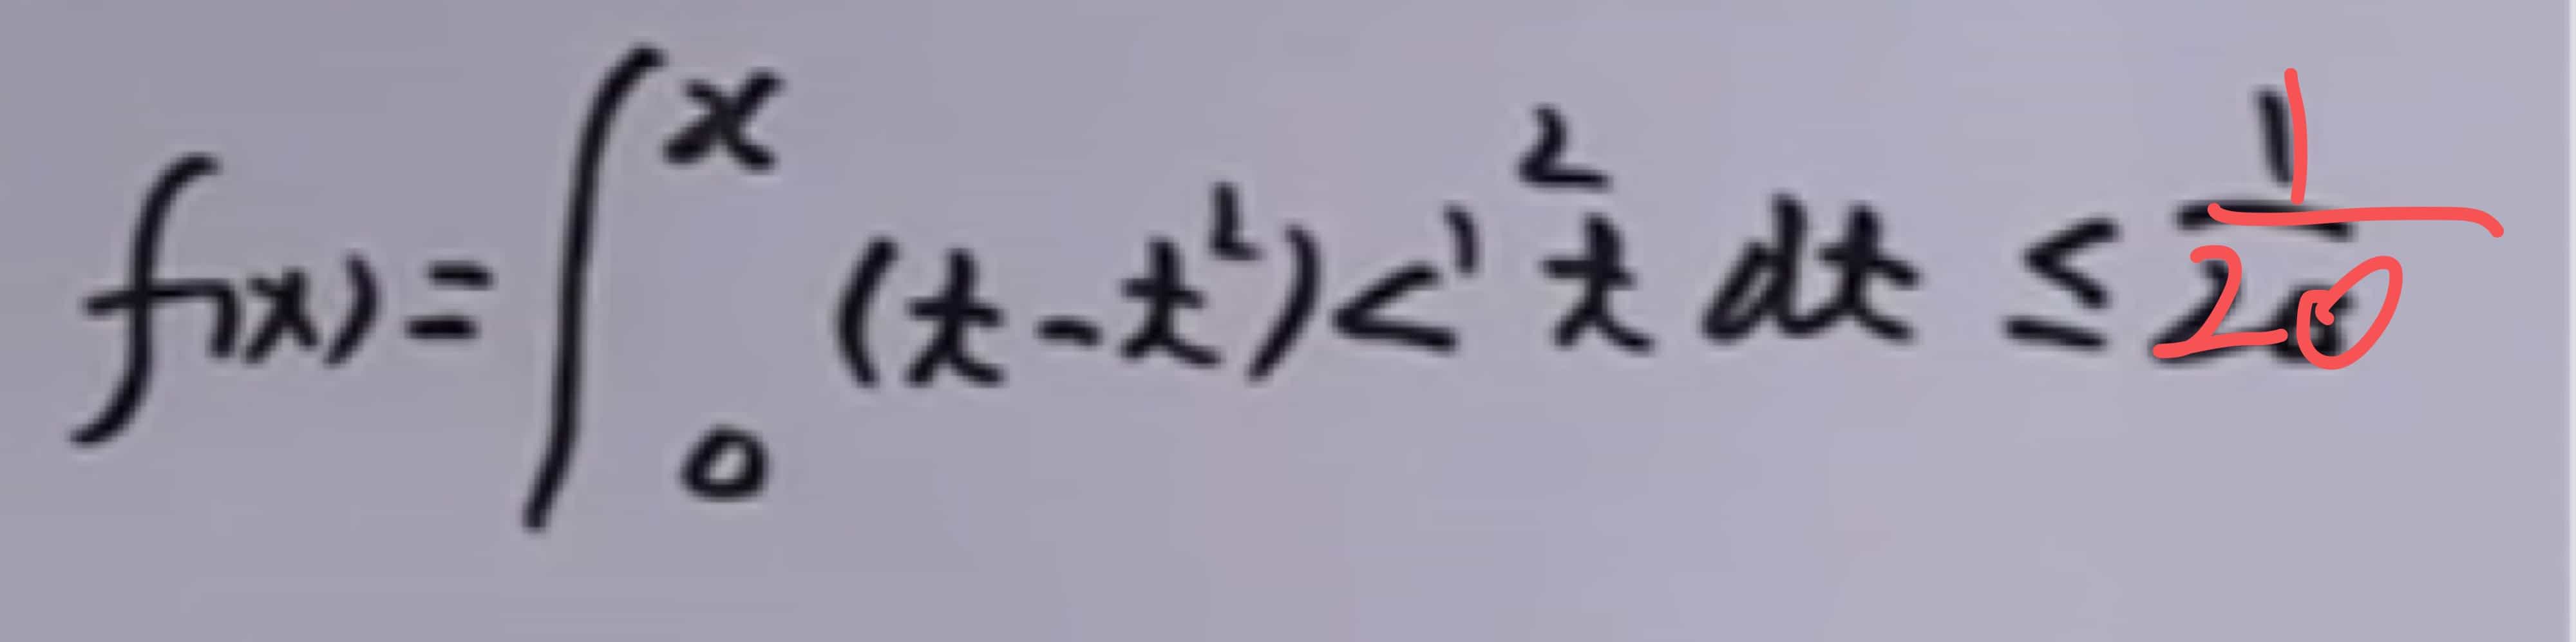 f(x)=∫₀ˣ (t-t²)<¹ ²t dt ≤ 1/20